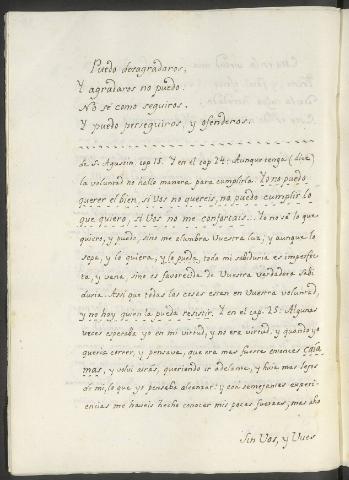 Puedo desagradaros,
Y agradaros no puedo:
No sé como seguiros,
Y puedo perseguiros, y ofenderos.
de S. Agustin cap 15. Y en el cap 24: Aunque tenga (dice)
la voluntad no hallo manera para cumplirla. Yo no puedo
querer el bien, si Vos no quereis, no puedo cumplir lo
que quiero, si Vos no me confortais... Yo no sé lo que
quiero, y puedo, sino me alumbra Vuestra luz, y aunque lo
sepa, y lo quiera, y lo pueda, toda mi sabiduria es imperfec-
ta, y vana, sino es favorecida de Vuestra verdadera Sabi-
duria. Assi que todas las cosas estan en Vuestra voluntad,
y no hay quien la pueda resistir. Y en el cap. 25: Algunas
veces esperaba yo en mi virtud, y no era virtud, y quando yo
queria correr, y pensava, que era mas fuerte entonces caia
mas, y volvi atras, queriendo ir adelante, y huia mas lejos
de mi, lo que yo pensaba alcanzar: y con semejantes experi-
encias me haveis hecho conocer mis pocas fuerzas; mas aho
Sin Vos, y Vues